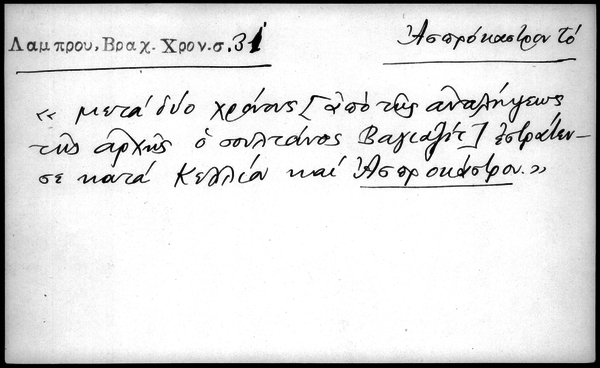 Λαμπρου, Βραχ. Χρον. σ. 31
Ἀσπρόκαστρον τό
« μετά δύο χρόνους [ἀπό τῆς ἀναλήψεως
τῆς ἀρχῆς ὁ σουλτάνος Βαγιαζίτ] ἐστράτευ-
σε κατά Κελλίον καί Ἀσπροκάστρου. »